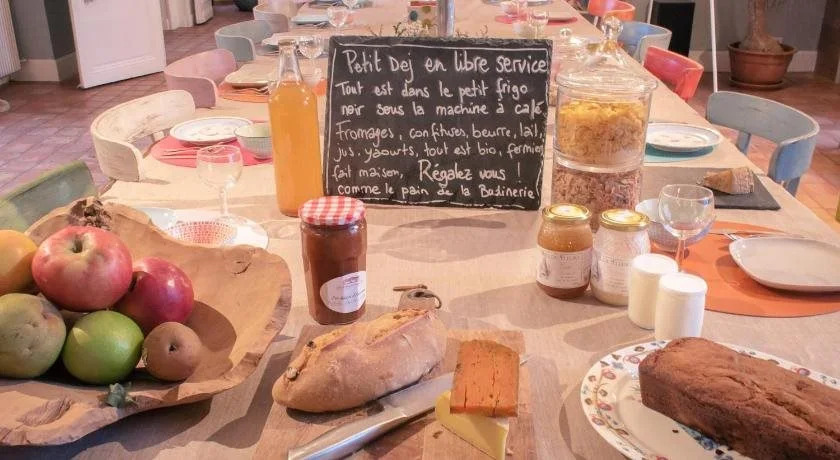 Petit Dej en libre service
Tout est dans le petit frigo
noir sous la machine à café
Fromages, confitures, beurre, lait,
jus, yaourts, tout est bio, fermier,
fait maison, Régalez vous !
comme le pain de la Badinerie